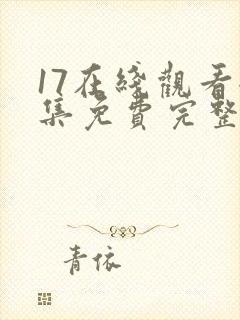 17在綫觀看
集免費完整
青依